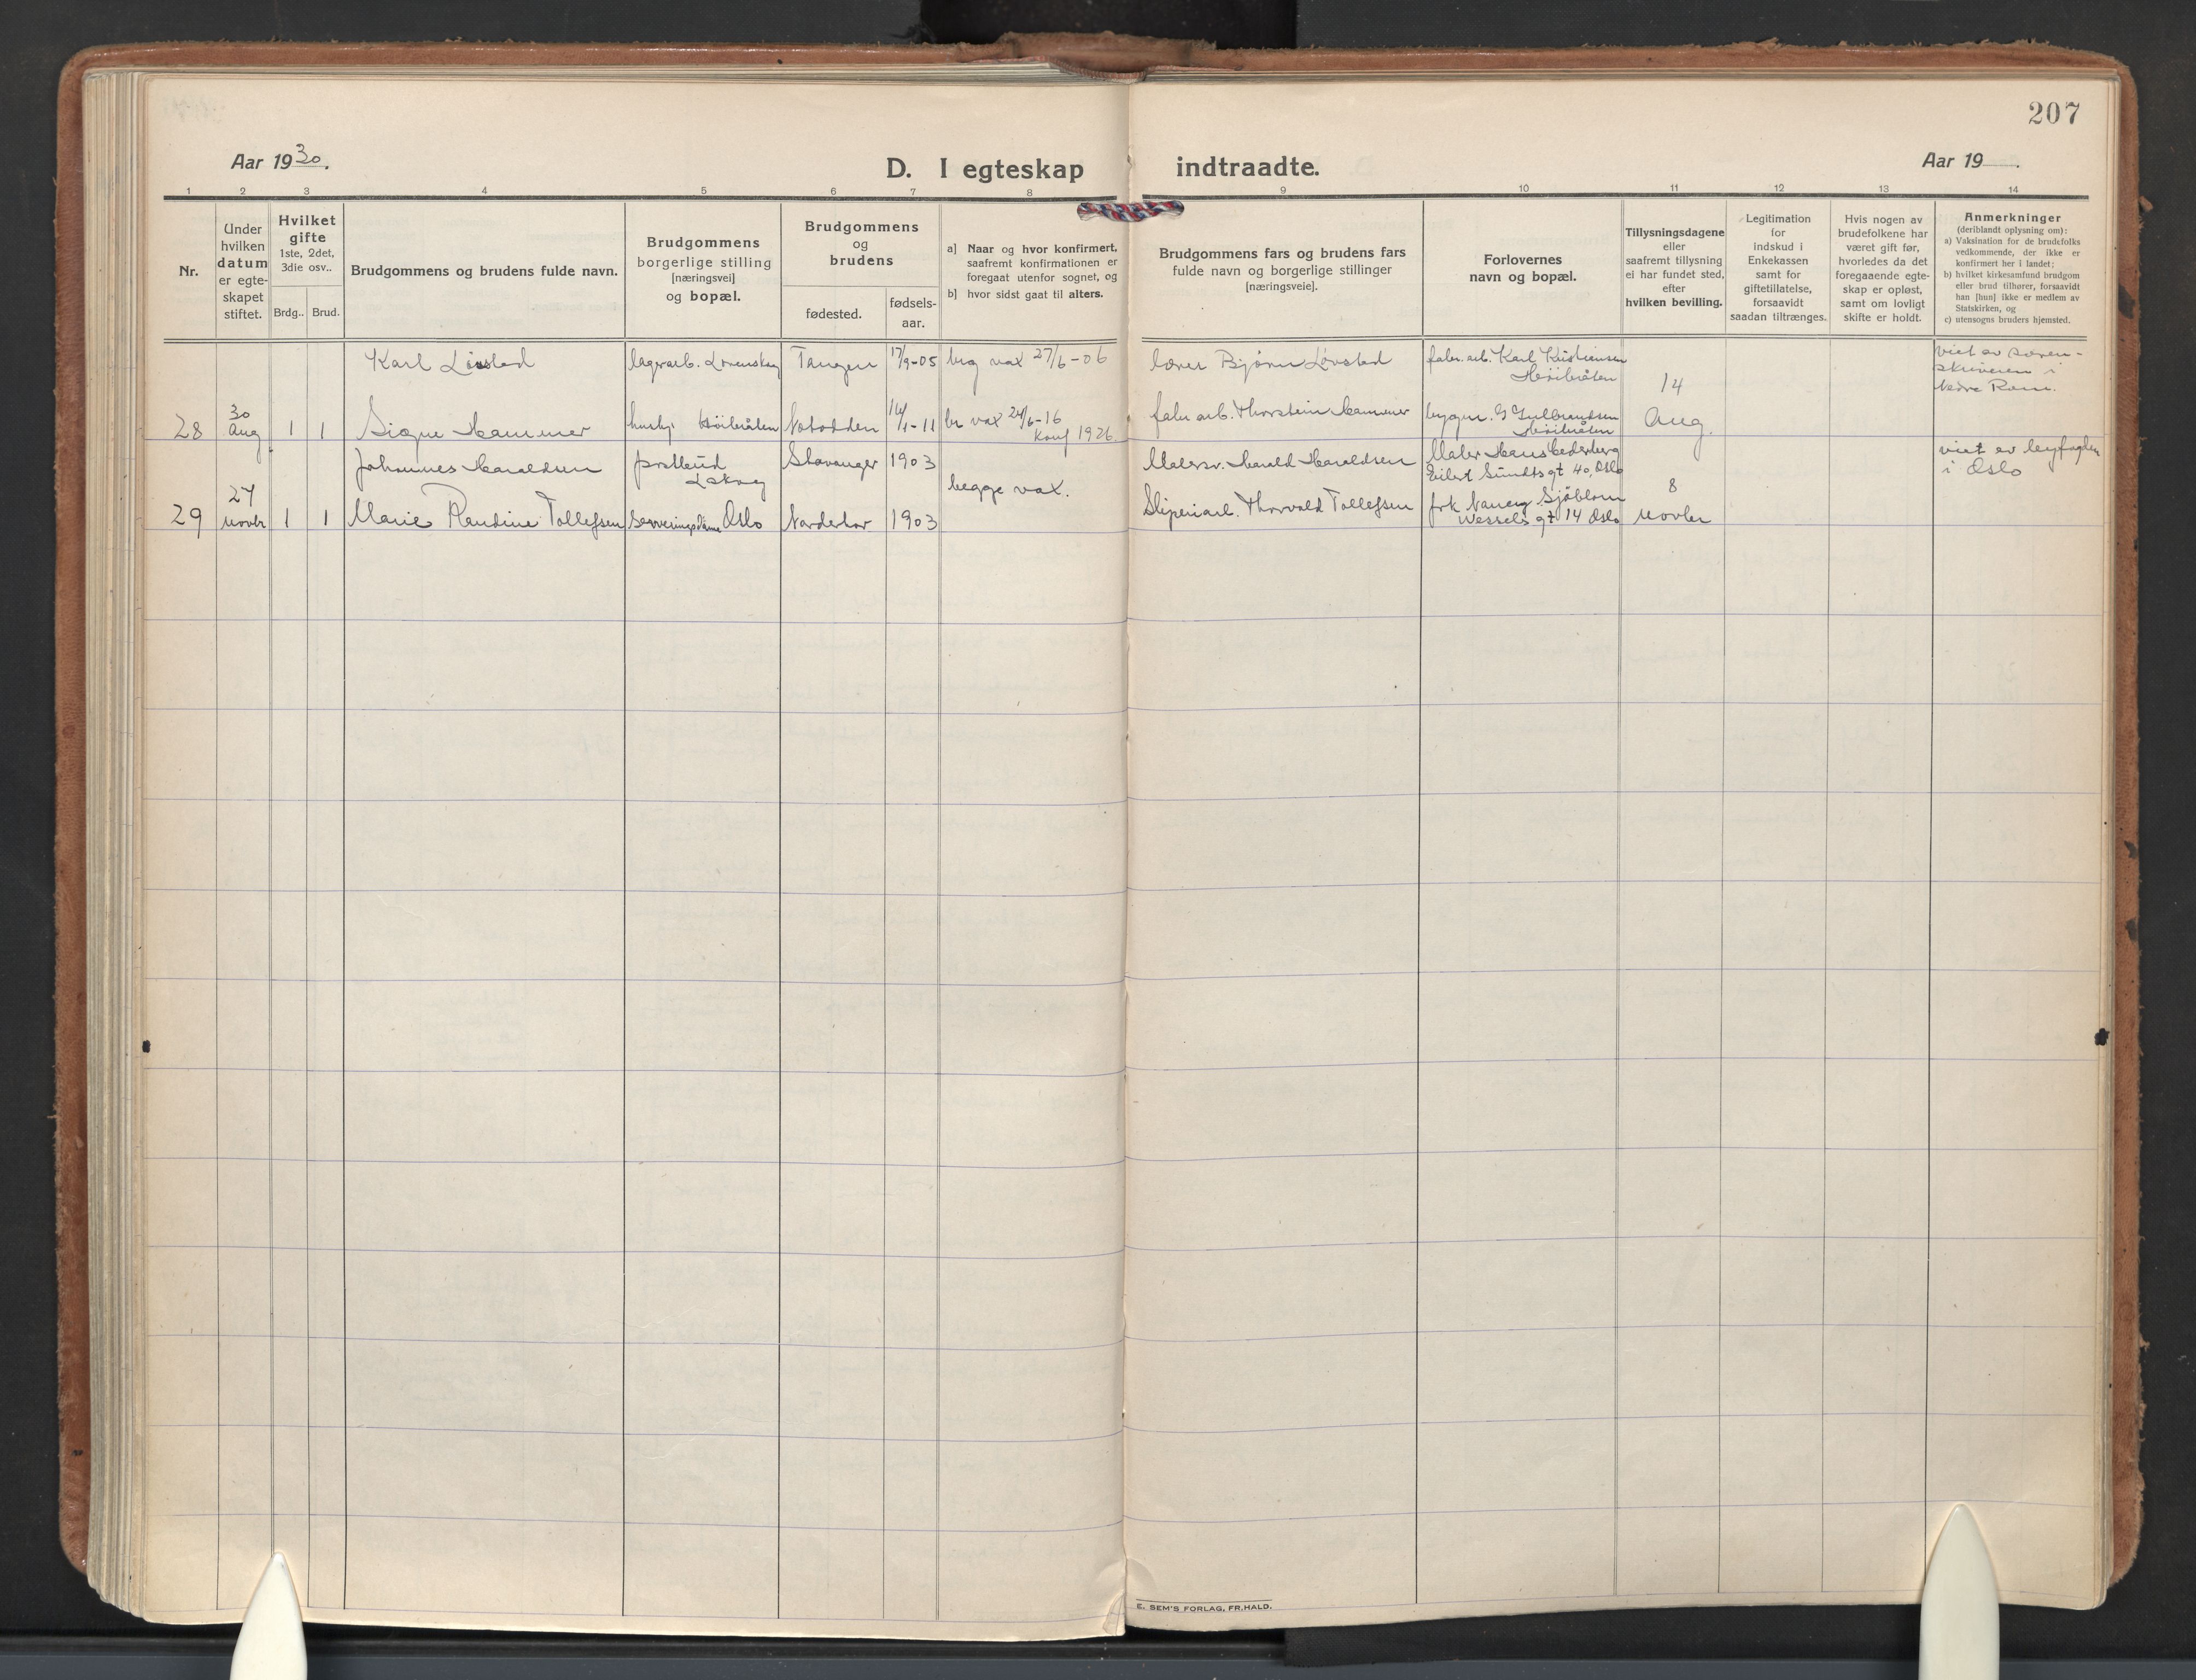 207
Aar 1930.
D. I egteskap indtraadte.
Aar 19 .
1 2 3 4 5 6 7 8 9 10 11 12 13 14
Nr.
Under
hvilken
datum
er egte-
skapet
stiftet.
Hvilket
gifte
1ste, 2det,
3die osv..
Brdg.. Brud.
Brudgommens og brudens fulde navn.
Brudgommens
borgerlige stilling
[næringsvei]
og bopæl.
Brudgommens
og
brudens
fødested.
fødsels-
aar.
a] Naar og hvor konfirmert,
saafremt konfirmationen er
foregaat utenfor sognet, og
b] hvor sidst gaat til alters.
Brudgommens fars og brudens fars
fulde navn og borgerlige stillinger
[næringsveie].
Forlovernes
navn og bopæl.
Tillysningsdagene
eller
saafremt tillysning
ei har fundet sted,
efter
hvilken bevilling.
Legitimation
for
indskud i
Enkekassen
samt for
giftetillatelse,
forsaavidt
saadan tiltrænges.
Hvis nogen av
brudefolkene har
været gift før,
hvorledes da det
foregaaende egte-
skap er opløst,
samt om lovligt
skifte er holdt.
Anmerkninger
(deriblandt oplysning om):
a) Vaksination for de brudefolks
vedkommende, der ikke er
konfirmert her i landet;
b) hvilket kirkesamfund brudgom
eller brud tilhører, forsaavidt
han [hun] ikke er medlem av
Statskirken, og
c) utensogns bruders hjemsted.
Karl Løvsted
lagerarb. Lørenskog
Tangen
17/9-05
beg vax 27/6-06
lærer Bjørn Løvsted
fabr. arb. Karl Kristiansen
Høibråten
viet av soren-
skriveren i
Nedre Rom.
28
30
Aug
1 1
Signe Hammer
hushj. Høibråten
Notodden
14/1-11
br vax 24/6-16
Konf 1926.
fabr arb. Thorstein Hammer
bygm. G Gulbrandsen
Høibråten
14
Aug.
Johannes Haraldsen
postbud
Lskog
Stavanger
1903
begge vax.
Malersv. Harald Haraldsen
Maler Hans Cederberg
Eilert Sundts gt 40, Oslo
viet av byfogden
i Oslo
29
27
Novbr
1 1
Marie Plaudine Tollefsen
Serveringsdame Oslo
Norderhov
1903
Sliperiarb. Thorvald Tollefsen
frk Nancy Sjöblom
Wessels gt 14 Oslo
8
Novbr
E. SEM'S FORLAG, FR.HALD.